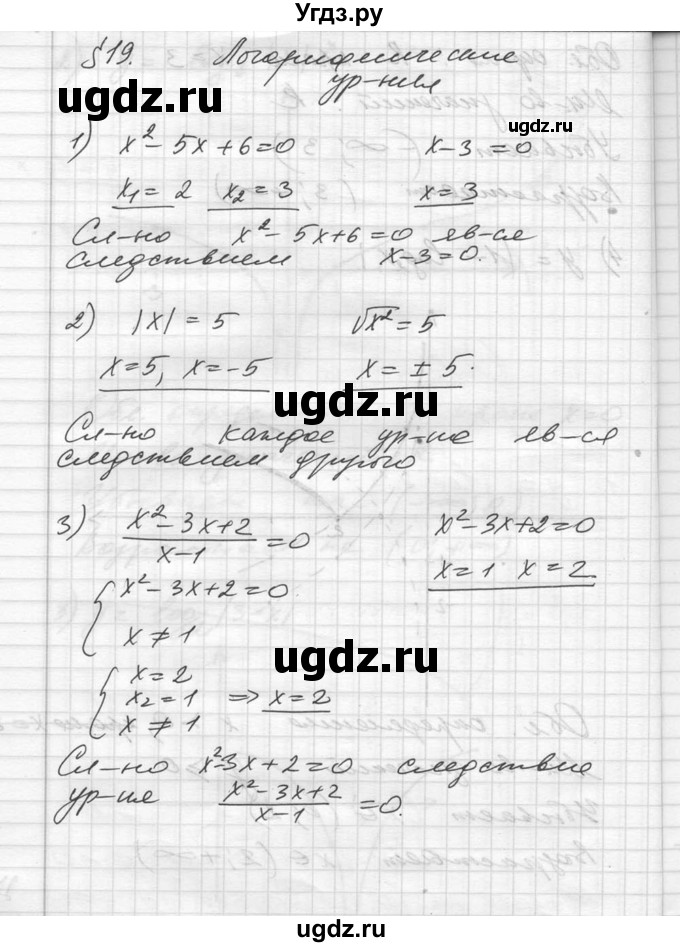 Угдз.ру
§19. Логарифмические
ур-ния
ugdz.ru
ugdz.ru
1) x² - 5x + 6 = 0 x - 3 = 0
x₁ = 2 x₂ = 3 x = 3
Сл-но x² - 5x + 6 = 0 яв-ся
следствием x - 3 = 0.
ugdz.ru
2) |x| = 5 √x² = 5
x = 5, x = -5 x = ± 5.
ugdz.ru
Сл-но каждое ур-ие яв-ся
следствием другого
ugdz.ru
ugdz.ru
3) (x² - 3x + 2)/(x - 1) = 0 x² - 3x + 2 = 0
x² - 3x + 2 = 0 x = 1 x = 2
x ≠ 1
ugdz.ru
x = 2
x₂ = 1 ⇒ x = 2
x ≠ 1
ugdz.ru
Сл-но x² - 3x + 2 = 0 следствие
ур-ия (x² - 3x + 2)/(x - 1) = 0.
ugdz.ru
ugdz.ru
ugdz.ru